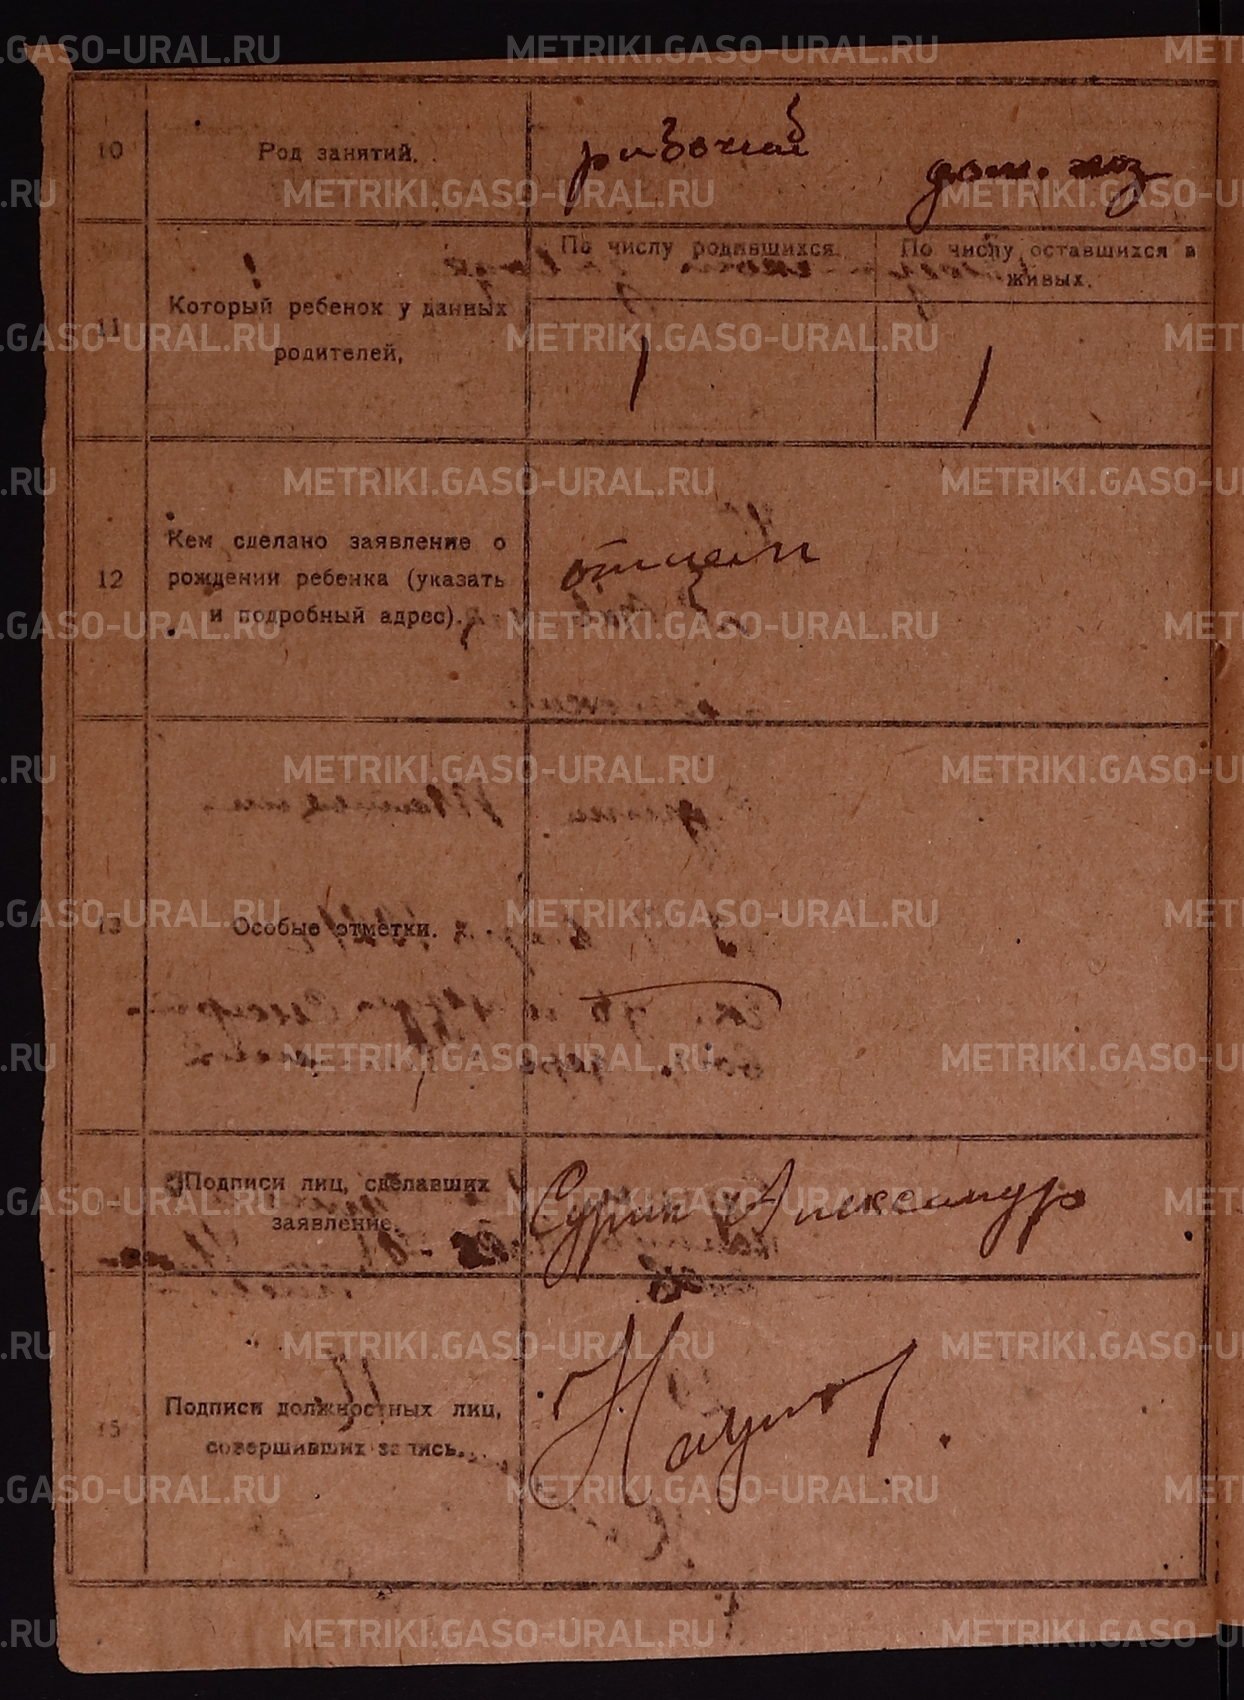 10
Род занятий.
рабочий
дом. хоз
По числу родившихся.
По числу оставшихся в
живых.
11
Который ребенок у данных
родителей,
1
1
12
Кем сделано заявление о
рождении ребенка (указать
и подробный адрес).
отцем
13
Особые отметки.
Подписи лиц, сделавших
заявление.
Сурин Александр
15
Подписи должностных лиц,
совершивших запись.
METRIKI.GASO-URAL.RU